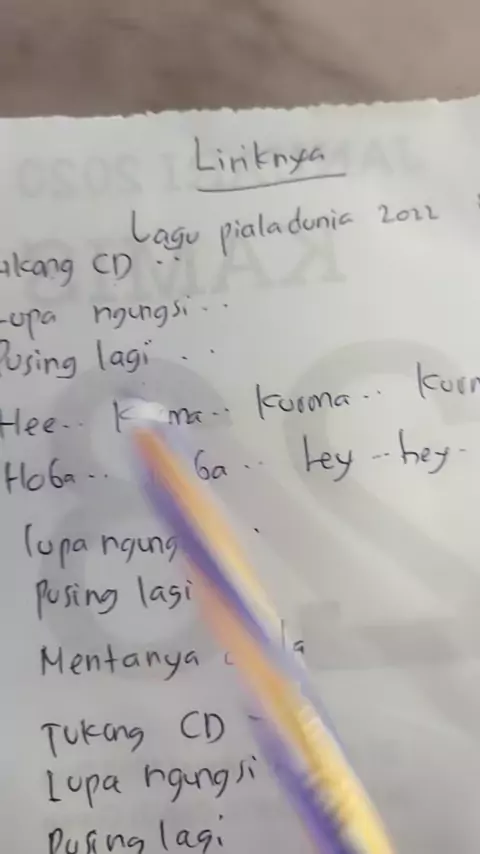 Liriknya
Lagu piala dunia 2022
Lupa ngungsi..
Pusing lagi..
Hee.. kurma.. kurma
Hoba.. hey..hey.
lupa
pusing lagi
Mentanya
Tukang CD
Lupa ngungsi
Pusing lagi